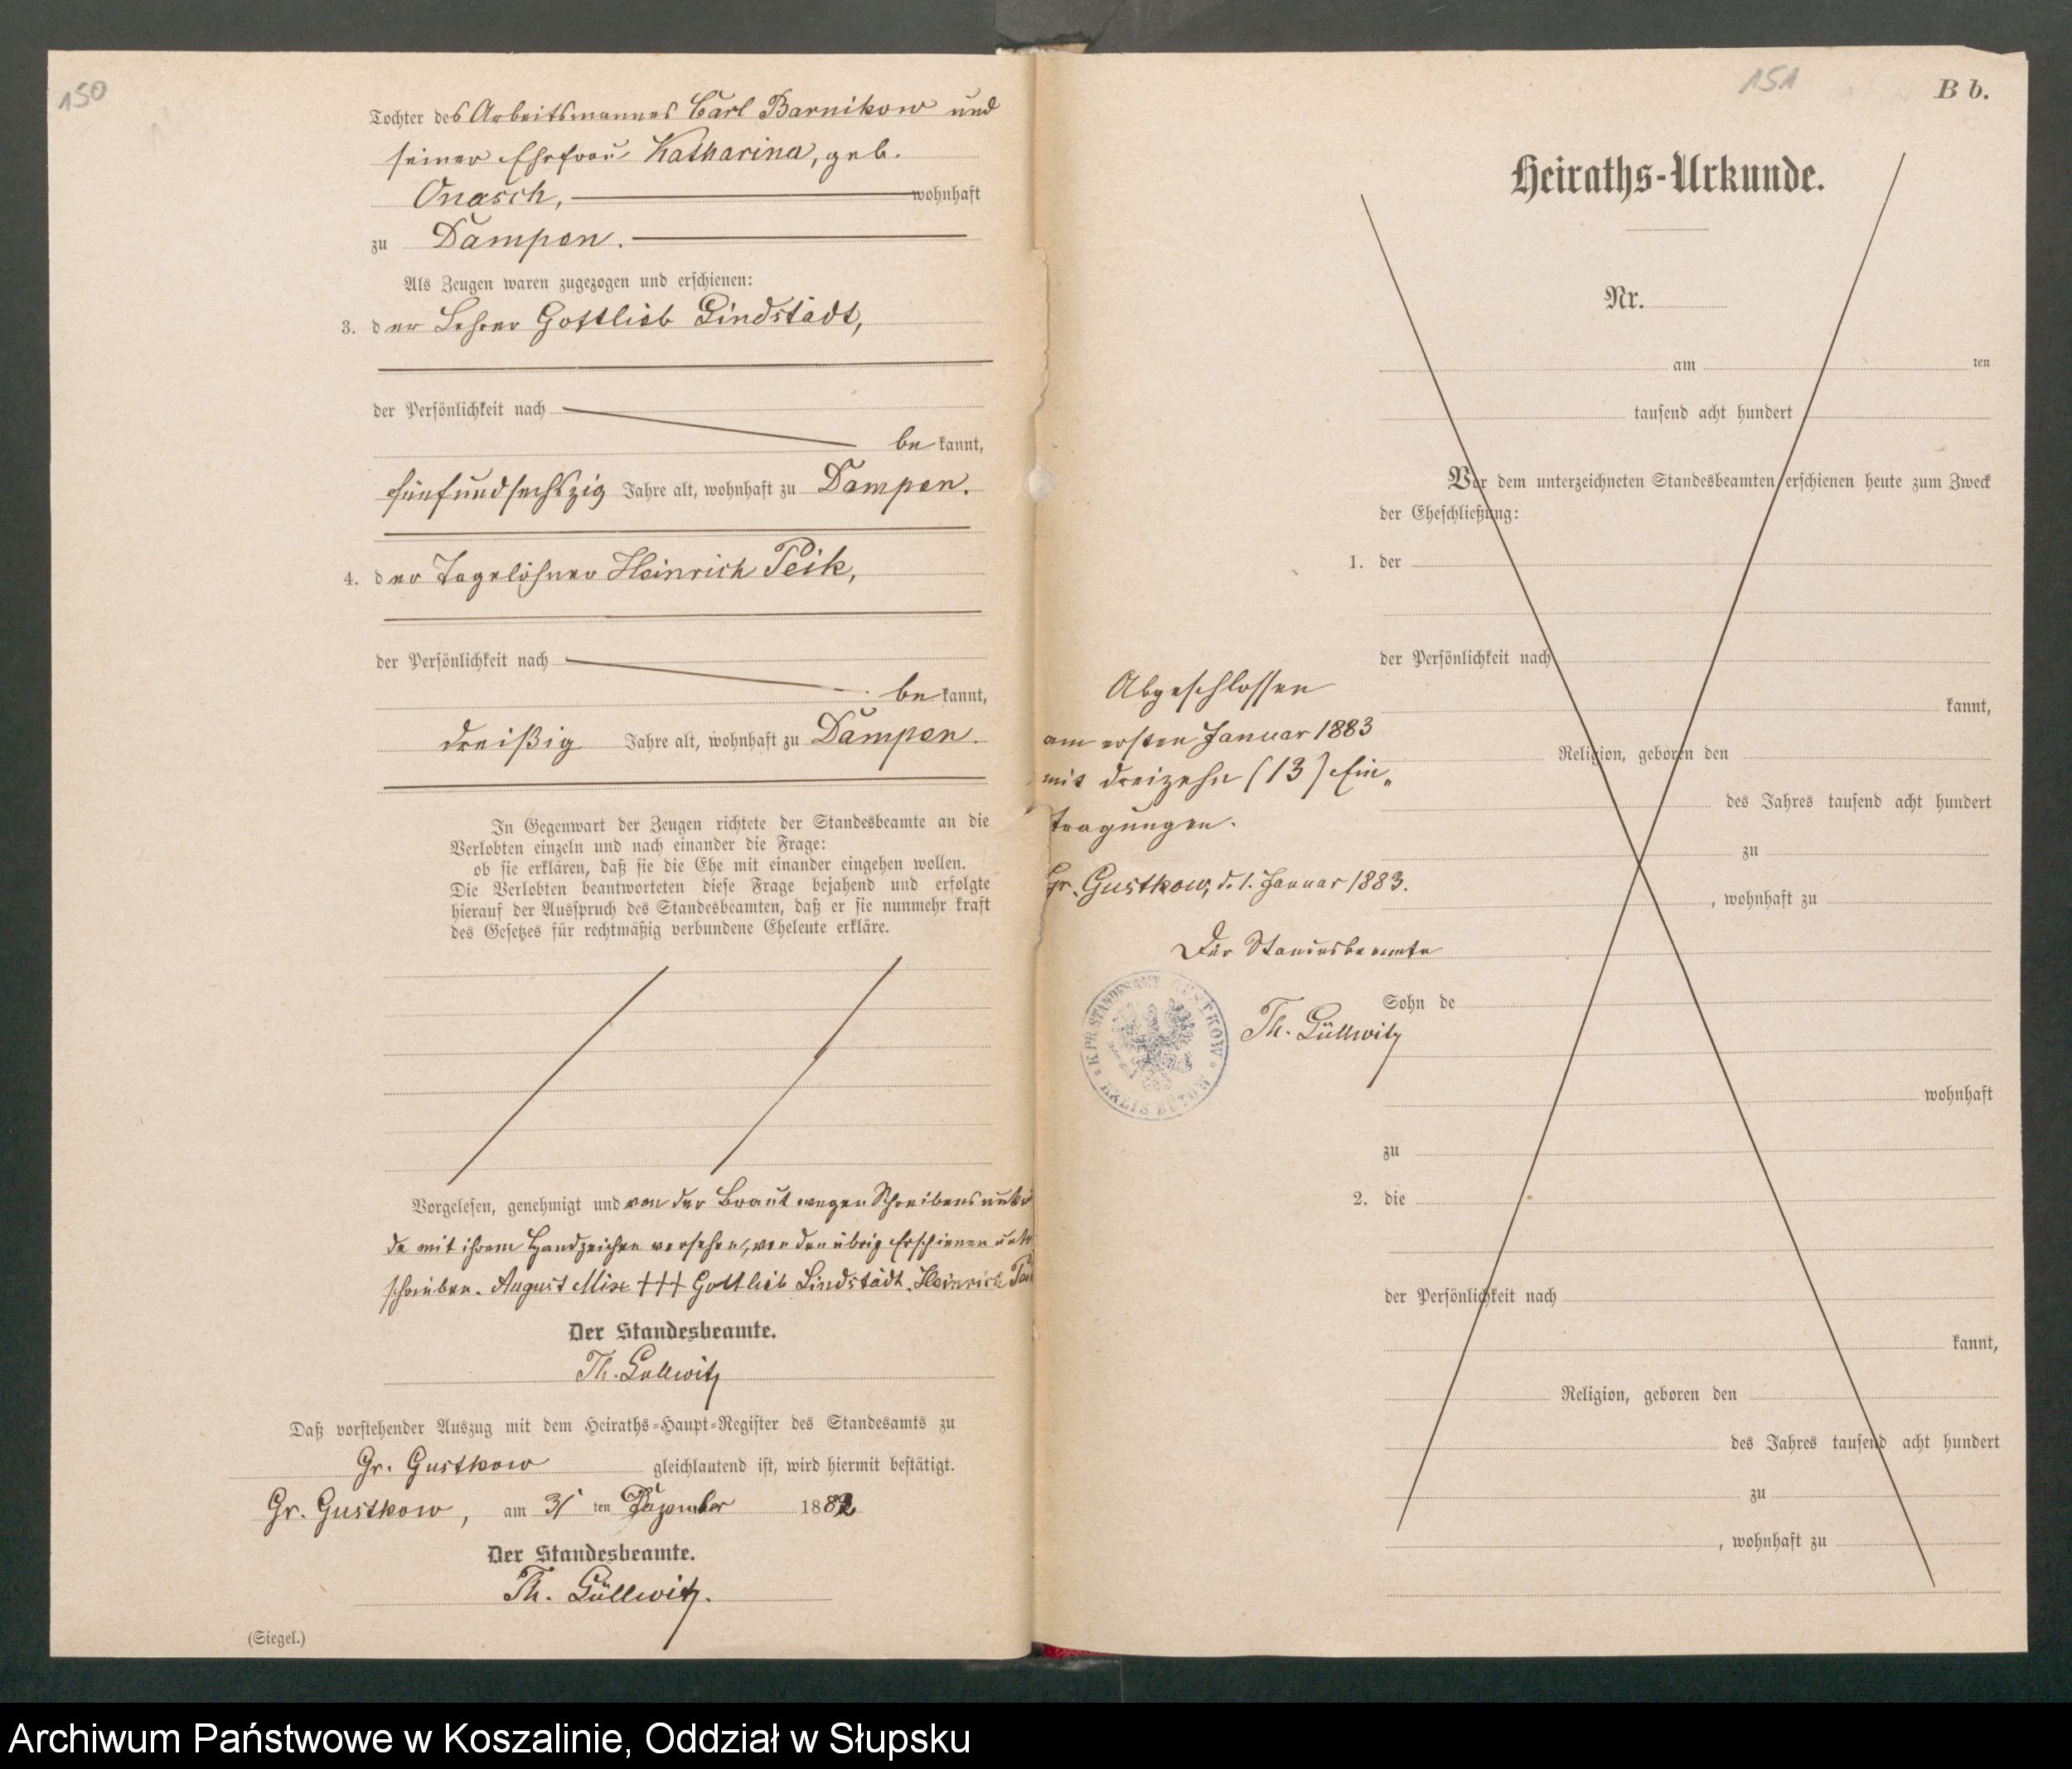 150
Tochter des Arbeitsmannes Carl Barnikow und
seiner Ehefrau Katharina, geb.
Onasch, wohnhaft
zu Dampen.
Als Zeugen waren zugezogen und erschienen:
3. der Lehrer Gottlieb Lindstädt,
der Persönlichkeit nach
bekannt,
fünfundsechszig Jahre alt, wohnhaft zu Dampen.
4. der Tagelöhner Heinrich Peik,
der Persönlichkeit nach
bekannt,
dreißig Jahre alt, wohnhaft zu Dampen.
In Gegenwart der Zeugen richtete der Standesbeamte an die
Verlobten einzeln und nach einander die Frage:
ob sie erklären, daß sie die Ehe mit einander eingehen wollen.
Die Verlobten beantworteten diese Frage bejahend und erfolgte
hierauf der Ausspruch des Standesbeamten, daß er sie nunmehr kraft
des Gesetzes für rechtmäßig verbundene Eheleute erkläre.
Vorgelesen, genehmigt und von der Braut wegen Schreibens
de mit ihrem Handzeichen versehen, von den übrig Erschienen unter
schrieben. August Mix +++ Gottlieb Lindstädt. Heinrich
Der Standesbeamte.
Th. Lüllwitz
Daß vorstehender Auszug mit dem Heiraths-Haupt-Register des Standesamts zu
Gr. Gustkow gleichlautend ist, wird hiermit bestätigt.
Gr. Gustkow, am 31 ten Dezember 1882
Der Standesbeamte.
Th. Lüllwitz.
(Siegel.)
151
B b.
Heiraths-Urkunde.
Nr.
am ten
tausend acht hundert
Vor dem unterzeichneten Standesbeamten erschienen heute zum Zweck
der Eheschließung:
1. der
der Persönlichkeit nach
kannt,
Religion, geboren den
des Jahres tausend acht hundert
zu
, wohnhaft zu
Sohn de
wohnhaft
zu
2. die
der Persönlichkeit nach
kannt,
Religion, geboren den
des Jahres tausend acht hundert
zu
, wohnhaft zu
Abgeschlossen
am ersten Januar 1883
mit dreizehn (13) Ein„
tragungen.
Gr. Gustkow, d. 1. Januar 1883.
Der Standesbeamte
Th. Lüllwitz
K. PR. STANDESAMT GUSTKOW
KREIS BÜTOW
Archiwum Państwowe w Koszalinie, Oddział w Słupsku